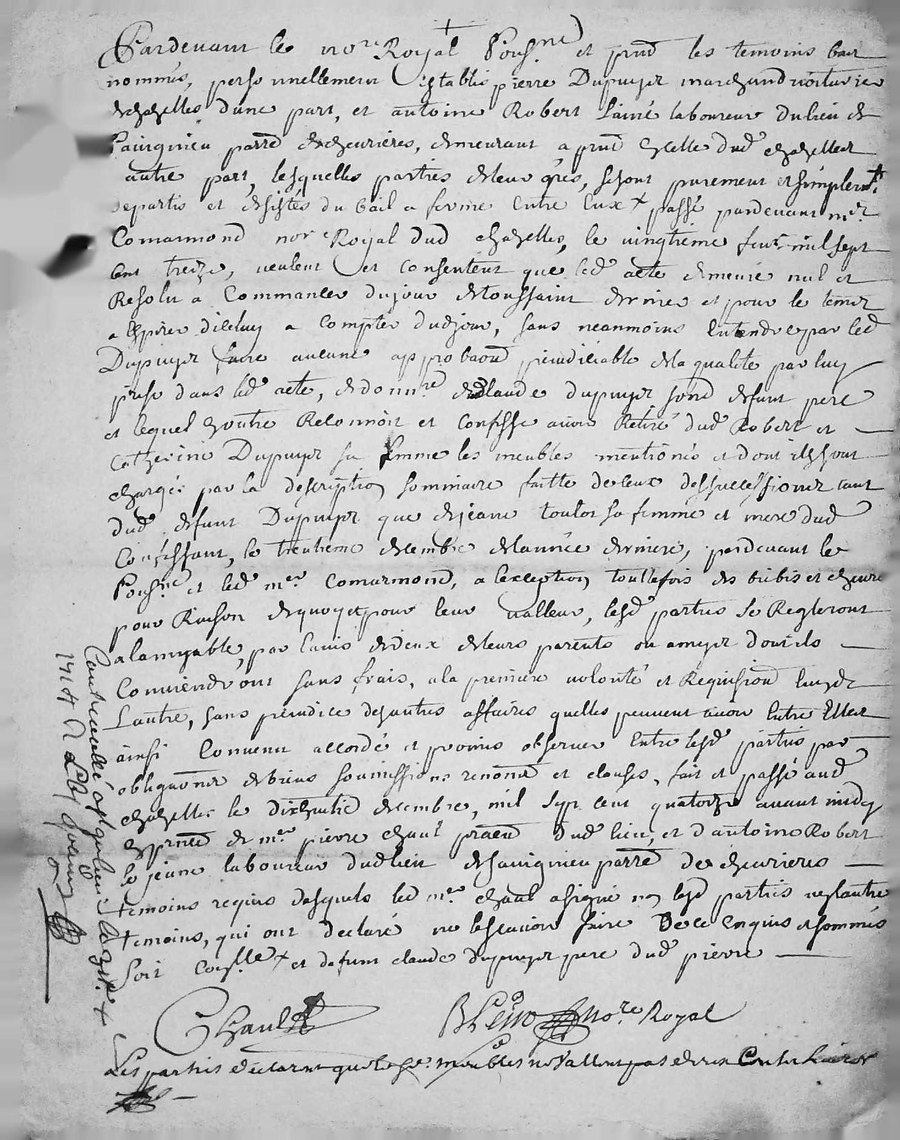 Pardevant le no.re Royal sous.né et pnts les temoins bas
nommés, personnellement establis pierre Dupuyer marchand voiturier
de chazelles dune part, et antoine Robert Lainé laboureur du lieu de
Sauignieu parre de cheurieres, demeurant a pnt dud. chazelles
autre part, lesquelles parties de leur grés, se sont purement et simplem.t
departis et desistés du bail a ferme entre Eux + passé pardevant m.re
Comarmond no.re Royal dud chazelles, le vingtieme feur. mil sept
cent treize, veulent et consentent que led. acte demeure nul et
Resolu a Commancer du jour de toussaint dernier et pour le temps
a Expirer diceluy a compter dud jour, sans neanmoins entendre par led
Dupuyer faire aucune approbaon prejudiciable de la qualité par luy
prise dans led. acte, claude dupuyer son defunt pere
et lequel outre Reconnoit et confesse auoir Retiré dud Robert et
Catherine Dupuyer sa femme les meubles mentionés et dont ils sont
chargés par la description sommaire faitte de ceux delaissés tant
dud. defunt Dupuyer que de jeane toulot sa femme et mere dud
Confessant, le trentieme decembre de lannée derniere, pardevant le
sous.né et led. m.re Comarmond, a lexception touttefois des brebis et cheure
pour Raison de quoy et pour leur valleur, lesd. parties se Regleront
a lamyable, par lauis de deux de leurs parents ou amys dont ils
Conuiendront sans frais, a la premiere volonté et Requision lun de
Lautre, sans prejudice des autres affaires quelles peuuent auoir Entre Elles
ainsi conuenu accordé et promis obseruer Entre lesd. parties par
obligaons de biens soumissions renons et clauses, fait et passé aud
chazelles le dixhuitie decembre, mil sept cent quatorze auant midy
En pnce de m.re pierre chaul praen dud. lieu, et dantoine Robert
le jeune laboureur dud lieu de Sauignieu parre de cheurieres
temoins requis desquels led. m.re chaul a signé non lesd. parties ny lautre
temoins, qui ont declaré ne le scauoir faire De ce Enquis et sommés
soit + et defunt claude dupuyer pere dud. pierre
Chaul
no.re Royal
Les parties declarent que les meubles ne vallent pas
Controllé
1714